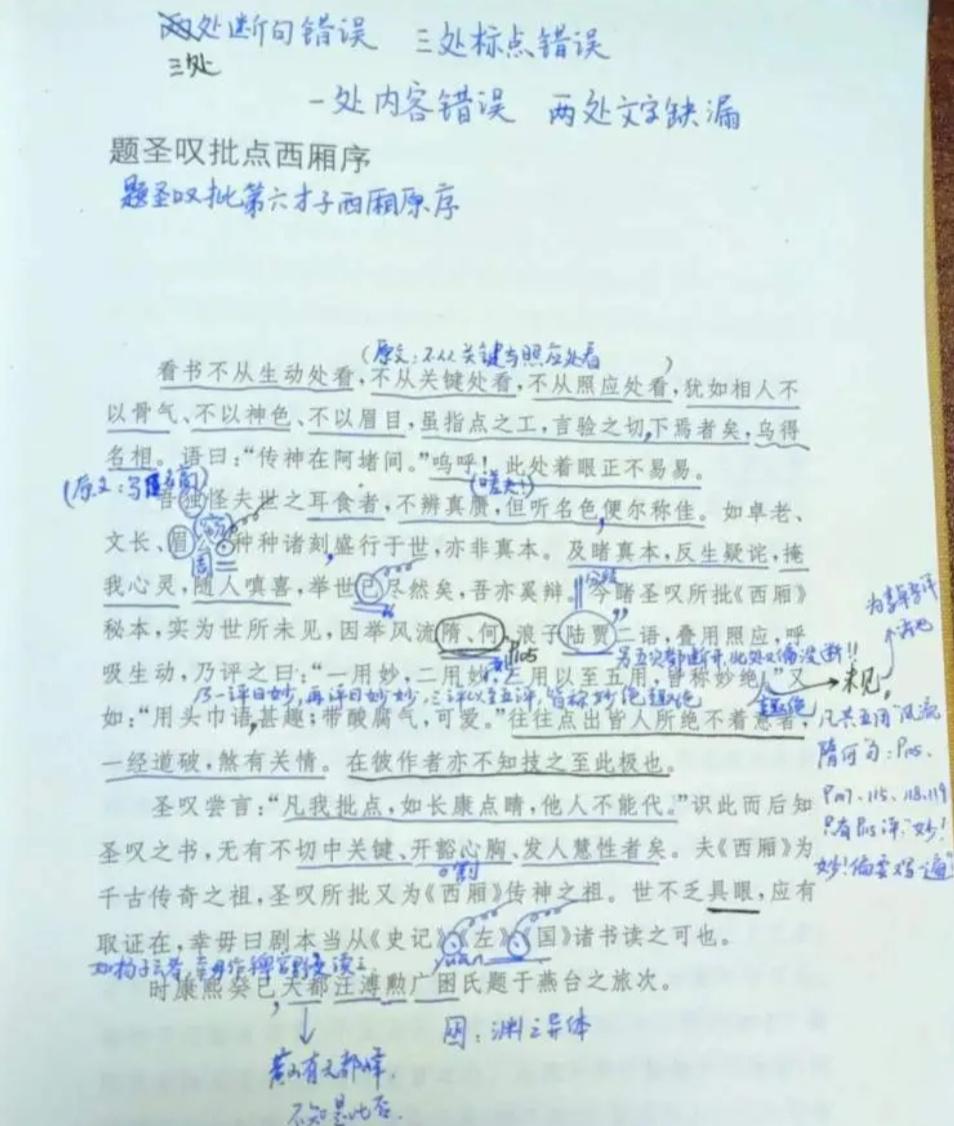 两处断句错误 三处标点错误
三处
一处内容错误 两处文字缺漏
题圣叹批点西厢序
题圣叹批第六才子西厢原序
(原文:不从关键与照应处看)
看书不从生动处看,不从关键处看,不从照应处看,犹如相人不
以骨气、不以神色、不以眉目,虽指点之工,言验之切,下焉者矣,乌得
名相。语曰:“传神在阿堵间。”呜呼!此处着眼正不易易。
(嗟夫!)
吾独怪夫世之耳食者,不辨真赝,但听名色,便尔称佳。如卓老、
文长、眉公种种诸刻,盛行于世,亦非真本。及睹真本,反生疑诧,掩
我心灵,随人嗔喜,举世已尽然矣,吾亦奚辩。今睹圣叹所批《西厢》
秘本,实为世所未见,因举风流隋、何,浪子陆贾二语,叠用照应,呼
吸生动,乃评之曰:“一用妙,二用妙,三用以至五用,皆称妙绝。”又
乃一评曰妙,再评曰妙妙,三评以至五评,皆称妙绝趣绝
趣绝
未见。
如:“用头巾语,甚趣;带酸腐气,可爱。”往往点出皆人所绝不着意者,
一经道破,煞有关情。在彼作者亦不知技之至此极也。
凡共五用“风流
隋何”句:P105.
只有P105评:“妙!
圣叹尝言:“凡我批点,如长康点睛,他人不能代。”识此而后知
圣叹之书,无有不切中关键、开豁心胸、发人慧性者矣。夫《西厢》为
千古传奇之祖,圣叹所批又为《西厢》传神之祖。世不乏具眼,应有
取证在,幸毋曰剧本当从《史记》《左》《国》诸书读之可也。
时康熙癸巳,天都汪溥勲广囦氏题于燕台之旅次。
囦:渊之异体
黄山有天都峰
不知是此否.